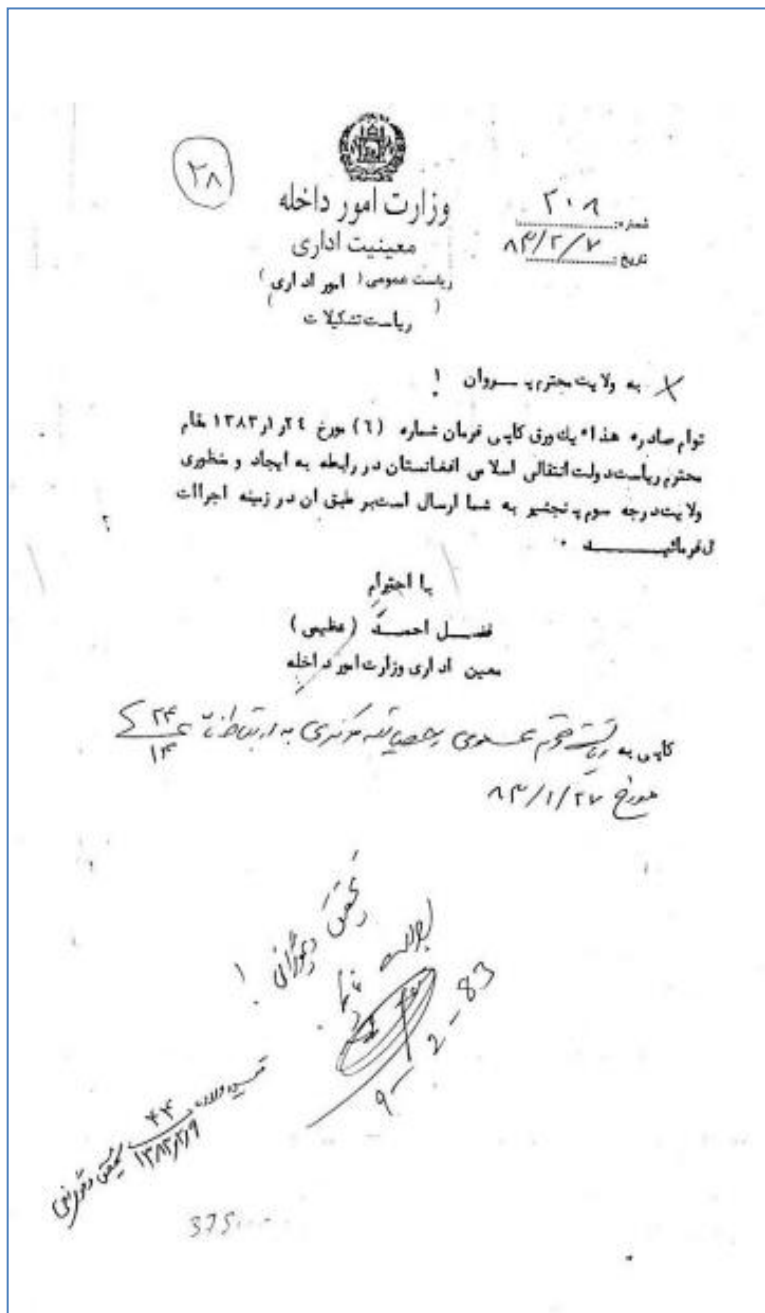 ۲۸
وزارت امور داخله
معینیت اداری
ریاست عمومی ( امور اداری )
( ریاست تشکیلات )
شماره: ۲۰۸
تاریخ: ۸۳/۲/۷
به ولایت محترم پــروان !
توام صادره هذا یك ورق کاپی فرمان شماره (٦) مورخ ٢٤ ر۱ر ۱۳۸۳ مقام
محترم ریاست دولت انتقالی اسلامی افغانستان در رابطه به ایجاد و منظوری
ولایت درجه سوم پنجشیر به شما ارسال است بر طبق ان در زمینه اجراات
فرمائیــــد .
با احترام
فضــل احمــد (عظیمی)
معین اداری وزارت امور داخله
کاپی به ریاست محترم عمومی احصائیه مرکزی به ارتباط ۲۴/۱۴
مورخ ۸۳/۱/۲۷
!
9-2-83
۴۴
۱۳۸۳/۲/۹